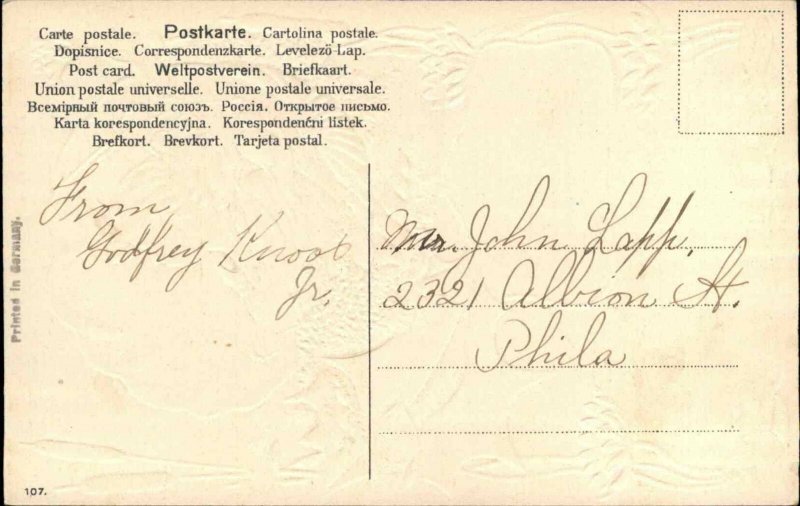 Carte postale. Postkarte. Cartolina postale.
Dopisnice. Correspondenzkarte. Levelező-Lap.
Post card. Weltpostverein. Briefkaart.
Union postale universelle. Unione postale universale.
Всемірный почтовый союзъ. Россія. Открытое письмо.
Karta korespondencyjna. Korespondenční lístek.
Brefkort. Brevkort. Tarjeta postal.
From
Godfrey
Jr.
Mr. John Lapp,
2321 Albion St.
Phila
Printed in Germany.
107.